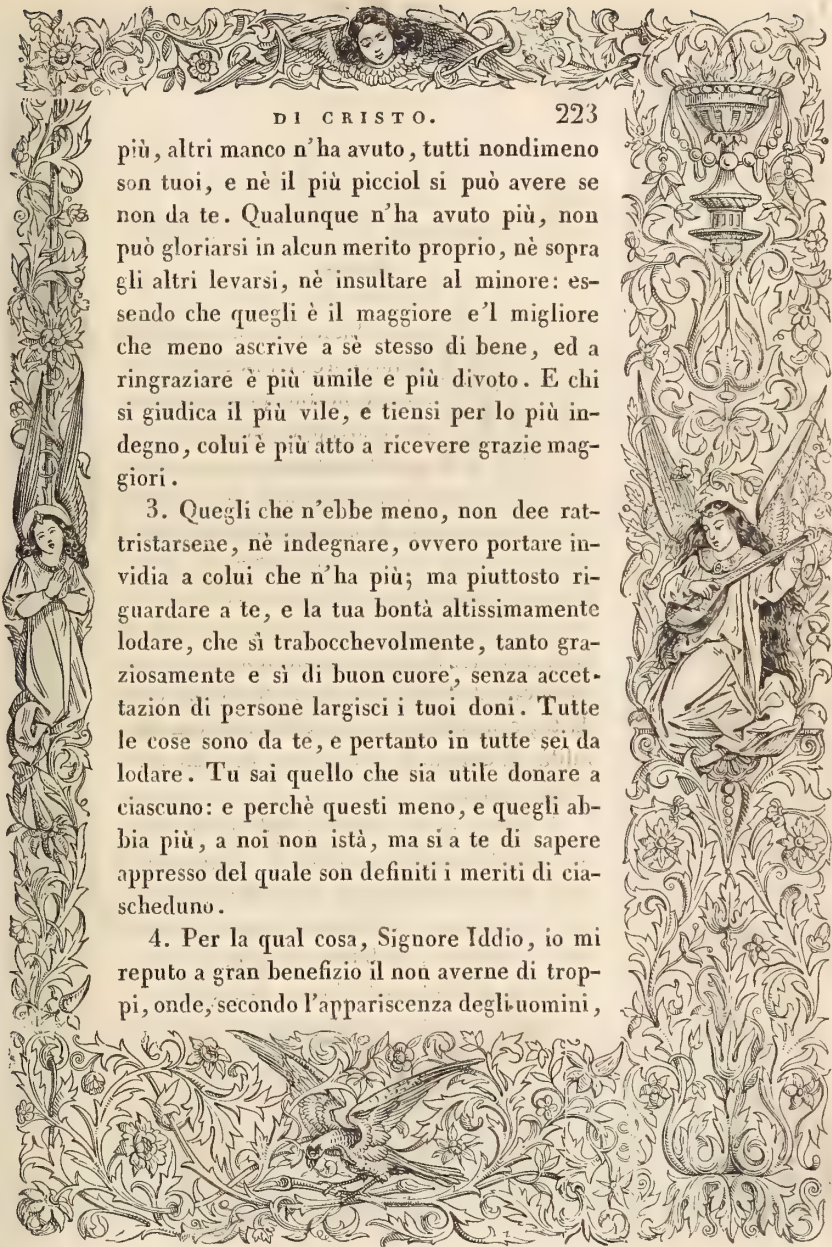 DI CRISTO. 223
più, altri manco n'ha avuto, tutti nondimeno
son tuoi, e nè il più picciol si può avere se
non da te. Qualunque n'ha avuto più, non
può gloriarsi in alcun merito proprio, nè sopra
gli altri levarsi, nè insultare al minore: es-
sendo che quegli è il maggiore e'l migliore
che meno ascrive a sè stesso di bene, ed a
ringraziare è più umile e più divoto. E chi
si giudica il più vile, e tiensi per lo più in-
degno, colui è più atto a ricevere grazie mag-
giori.
3. Quegli che n'ebbe meno, non dee rat-
tristarsene, nè indegnare, ovvero portare in-
vidia a colui che n'ha più; ma piuttosto ri-
guardare a te, e la tua bontà altissimamente
lodare, che sì trabocchevolmente, tanto gra-
ziosamente e sì di buon cuore, senza accet-
tazion di persone largisci i tuoi doni. Tutte
le cose sono da te, e pertanto in tutte sei da
lodare. Tu sai quello che sia utile donare a
ciascuno: e perchè questi meno, e quegli ab-
bia più, a noi non istà, ma si a te di sapere
appresso del quale son definiti i meriti di cia-
scheduno.
4. Per la qual cosa, Signore Iddio, io mi
reputo a gran benefizio il non averne di trop-
pi, onde, secondo l'appariscenza degli uomini,